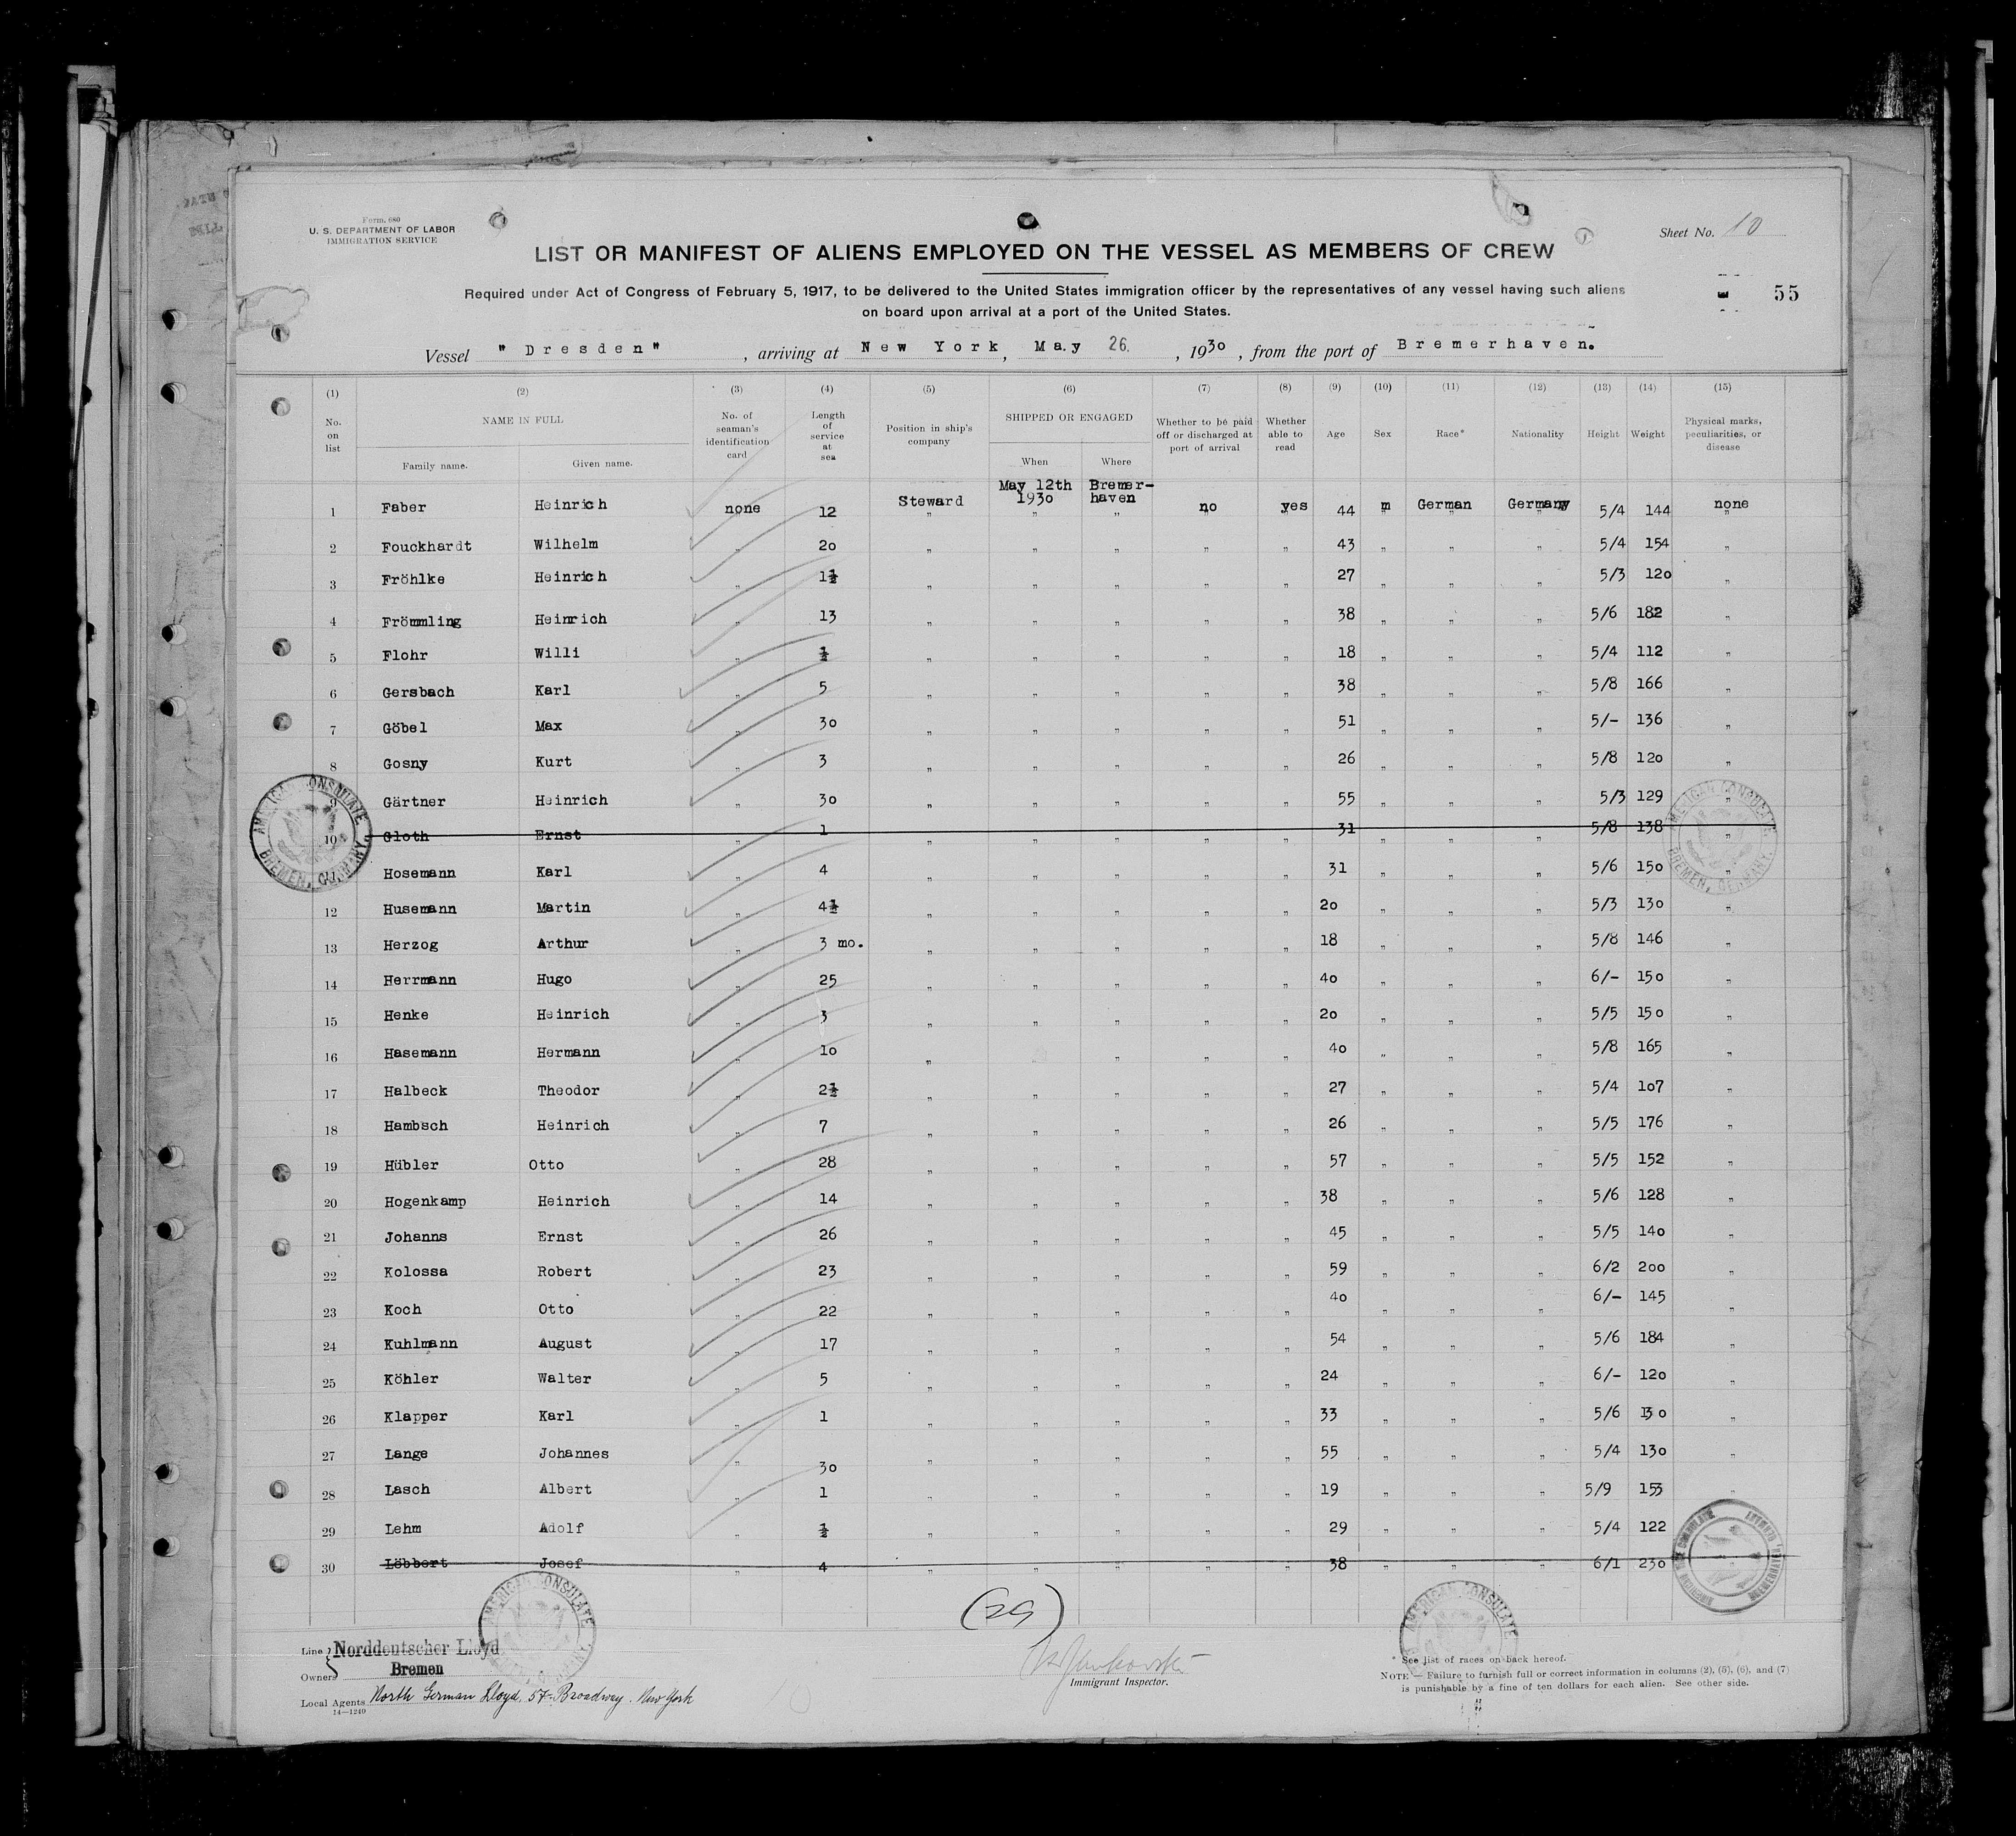 Form. 680
U. S. DEPARTMENT OF LABOR
IMMIGRATION SERVICE
Sheet No. 10
LIST OR MANIFEST OF ALIENS EMPLOYED ON THE VESSEL AS MEMBERS OF CREW
Required under Act of Congress of February 5, 1917, to be delivered to the United States immigration officer by the representatives of any vessel having such aliens
on board upon arrival at a port of the United States.
55
Vessel "Dresden", arriving at New York, May 26, 1930, from the port of Bremerhaven.
(1) (2) (3) (4) (5) (6) (7) (8) (9) (10) (11) (12) (13) (14) (15)
No. on list | NAME IN FULL | Family name. | Given name. | No. of seaman's identification card | Length of service at sea | Position in ship's company | SHIPPED OR ENGAGED | When | Where | Whether to be paid off or discharged at port of arrival | Whether able to read | Age | Sex | Race* | Nationality | Height | Weight | Physical marks, peculiarities, or disease
1 Faber Heinrich none 12 Steward May 12th 1930 Bremer-haven no yes 44 m German Germany 5/4 144 none
2 Fouckhardt Wilhelm " 20 " " " " " 43 " " " 5/4 154 "
3 Fröhlke Heinrich " 1½ " " " " " 27 " " " 5/3 120 "
4 Frömmling Heinrich " 13 " " " " " 38 " " " 5/6 182 "
5 Flohr Willi " ½ " " " " " 18 " " " 5/4 112 "
6 Gersbach Karl " 5 " " " " " 38 " " " 5/8 166 "
7 Göbel Max " 30 " " " " " 51 " " " 5/- 136 "
8 Gosny Kurt " 3 " " " " " 26 " " " 5/8 120 "
9 Gärtner Heinrich " 30 " " " " " 55 " " " 5/3 129 "
10 Gloth Ernst " 1 " " " " " 31 " " " 5/8 138 "
Hosemann Karl " 4 " " " " " 31 " " " 5/6 150 "
12 Husemann Martin " 4½ " " " " " 20 " " " 5/3 130 "
13 Herzog Arthur " 3 mo. " " " " " 18 " " " 5/8 146 "
14 Herrmann Hugo " 25 " " " " " 40 " " " 6/- 150 "
15 Henke Heinrich " 3 " " " " " 20 " " " 5/5 150 "
16 Hasemann Hermann " 10 " " " " 40 " " " 5/8 165 "
17 Halbeck Theodor " 2½ " " " " " 27 " " " 5/4 107 "
18 Hambsch Heinrich " 7 " " " " " 26 " " " 5/5 176 "
19 Hübler Otto " 28 " " " " " 57 " " " 5/5 152 "
20 Hogenkamp Heinrich " 14 " " " " " 38 " " " 5/6 128 "
21 Johanns Ernst " 26 " " " " " 45 " " " 5/5 140 "
22 Kolossa Robert " 23 " " " " " 59 " " " 6/2 200 "
23 Koch Otto " 22 " " " " " 40 " " " 6/- 145 "
24 Kuhlmann August " 17 " " " " " 54 " " " 5/6 184 "
25 Köhler Walter " 5 " " " " " 24 " " " 6/- 120 "
26 Klapper Karl " 1 " " " " " 33 " " " 5/6 130 "
27 Lange Johannes " 30 " " " " " 55 " " " 5/4 130 "
28 Lasch Albert " 1 " " " " " 19 " " " 5/9 153 "
29 Lehm Adolf " ½ " " " " " 29 " " " 5/4 122
30 Löbbert Josef " 4 " " " " " 38 " " " 6/1 230
AMERICAN CONSULATE BREMEN, GERMANY
AMERICAN CONSULATE BREMEN, GERMANY
AMERICAN CONSULATE
AMERICAN CONSULATE
(29)
Line } Norddeutscher Lloyd
Owners } Bremen
Local Agents North German Lloyd, 57 Broadway. New York
14—1240
Immigrant Inspector.
* See list of races on back hereof.
NOTE.—Failure to furnish full or correct information in columns (2), (5), (6), and (7)
is punishable by a fine of ten dollars for each alien. See other side.